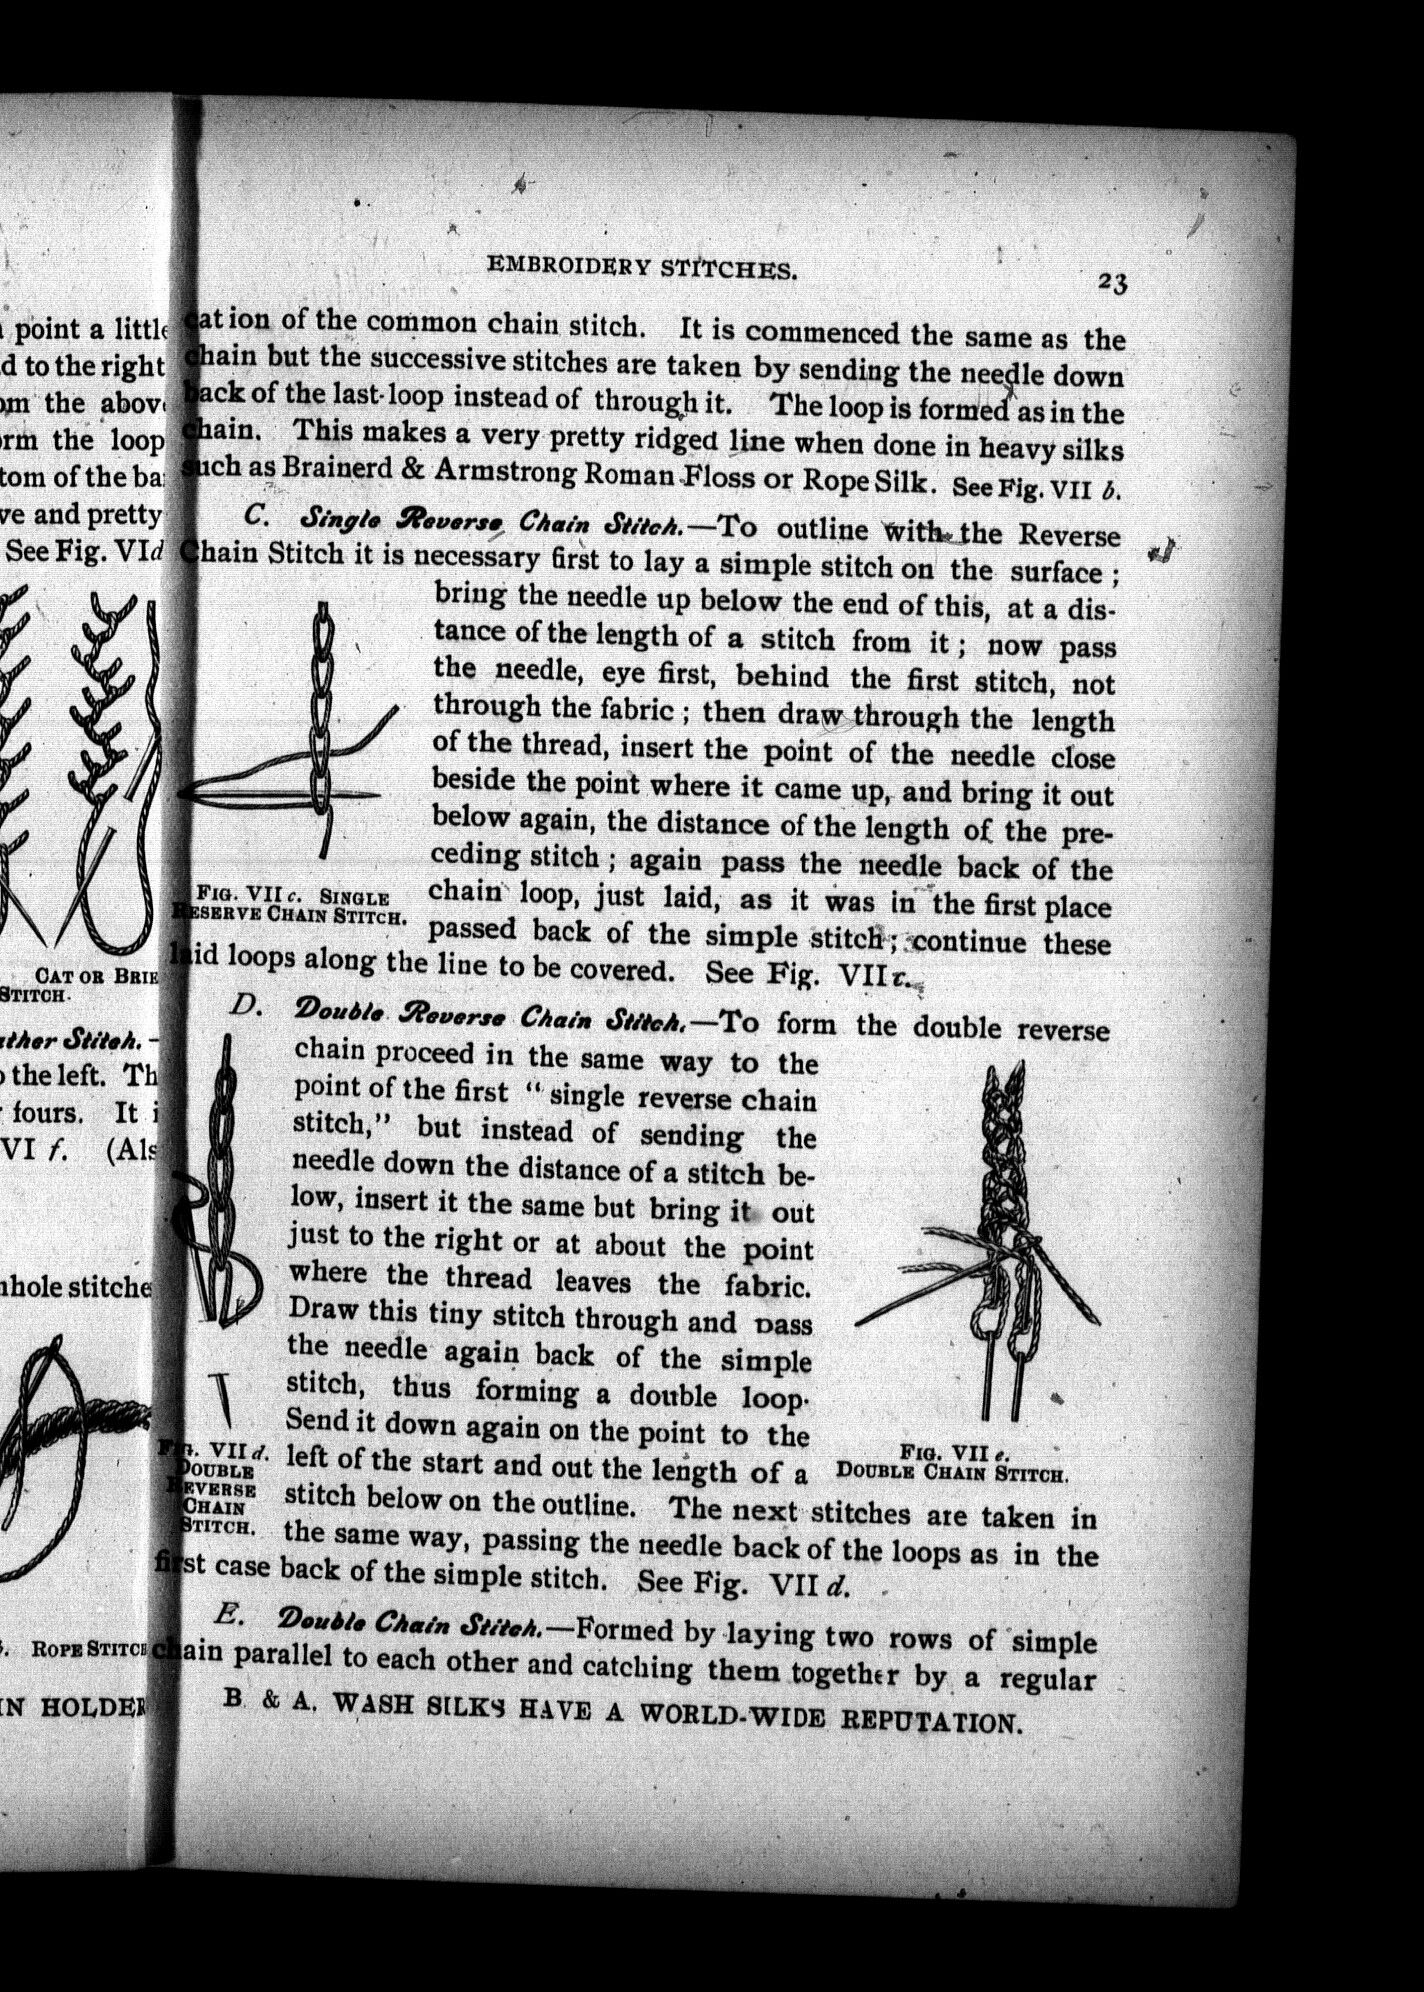 EMBROIDERY STITCHES.
23
cation of the common chain stitch. It is commenced the same as the
chain but the successive stitches are taken by sending the needle down
back of the last loop instead of through it. The loop is formed as in the
chain. This makes a very pretty ridged line when done in heavy silks
such as Brainerd & Armstrong Roman Floss or Rope Silk. See Fig. VII b.
C. Single Reverse Chain Stitch.—To outline with the Reverse
Chain Stitch it is necessary first to lay a simple stitch on the surface ;
bring the needle up below the end of this, at a dis-
tance of the length of a stitch from it ; now pass
the needle, eye first, behind the first stitch, not
through the fabric ; then draw through the length
of the thread, insert the point of the needle close
beside the point where it came up, and bring it out
below again, the distance of the length of the pre-
ceding stitch ; again pass the needle back of the
chain loop, just laid, as it was in the first place
passed back of the simple stitch ; continue these
laid loops along the line to be covered. See Fig. VII c.
FIG. VII c. SINGLE
RESERVE CHAIN STITCH.
D. Double Reverse Chain Stitch.—To form the double reverse
chain proceed in the same way to the
point of the first “ single reverse chain
stitch,” but instead of sending the
needle down the distance of a stitch be-
low, insert it the same but bring it out
just to the right or at about the point
where the thread leaves the fabric.
Draw this tiny stitch through and pass
the needle again back of the simple
stitch, thus forming a double loop.
Send it down again on the point to the
left of the start and out the length of a
stitch below on the outline. The next stitches are taken in
the same way, passing the needle back of the loops as in the
first case back of the simple stitch. See Fig. VII d.
FIG. VII d.
DOUBLE
REVERSE
CHAIN
STITCH.
FIG. VII e.
DOUBLE CHAIN STITCH.
E. Double Chain Stitch.—Formed by laying two rows of simple
chain parallel to each other and catching them together by a regular
B. & A. WASH SILKS HAVE A WORLD-WIDE REPUTATION.
point a little
d to the right
om the above
orm the loop
tom of the ba
ve and pretty
See Fig. VI d
CAT OR BRIE
STITCH.
ather Stitch.—
o the left. Th
fours. It i
VI f. (Als
nhole stitche
ROPE STITC
IN HOLDER